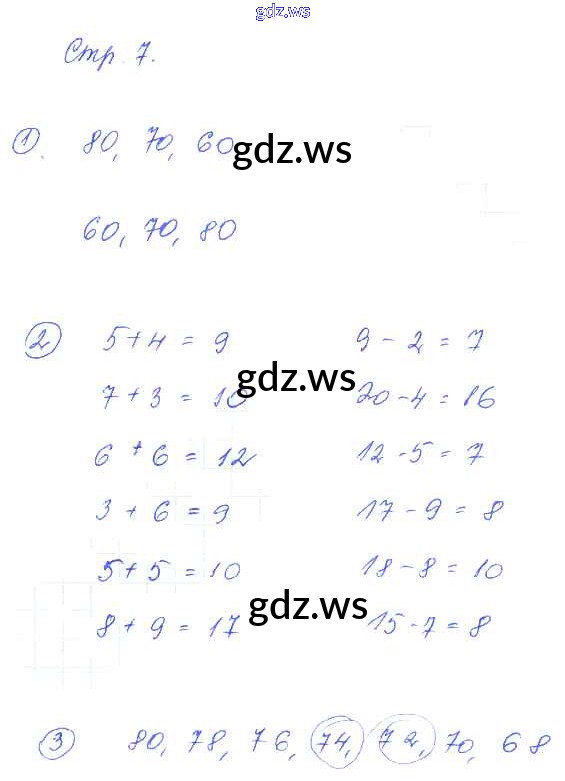 gdz.ws
Стр. 7.
1. 80, 70, 60
gdz.ws
60, 70, 80
2 5+4 = 9 9 - 2 = 7
gdz.ws
7 + 3 = 10 20 - 4 = 16
6 + 6 = 12 12 - 5 = 7
3 + 6 = 9 17 - 9 = 8
5 + 5 = 10 18 - 8 = 10
gdz.ws
8 + 9 = 17 15 - 7 = 8
3 80, 78, 76, 74, 72, 70, 68